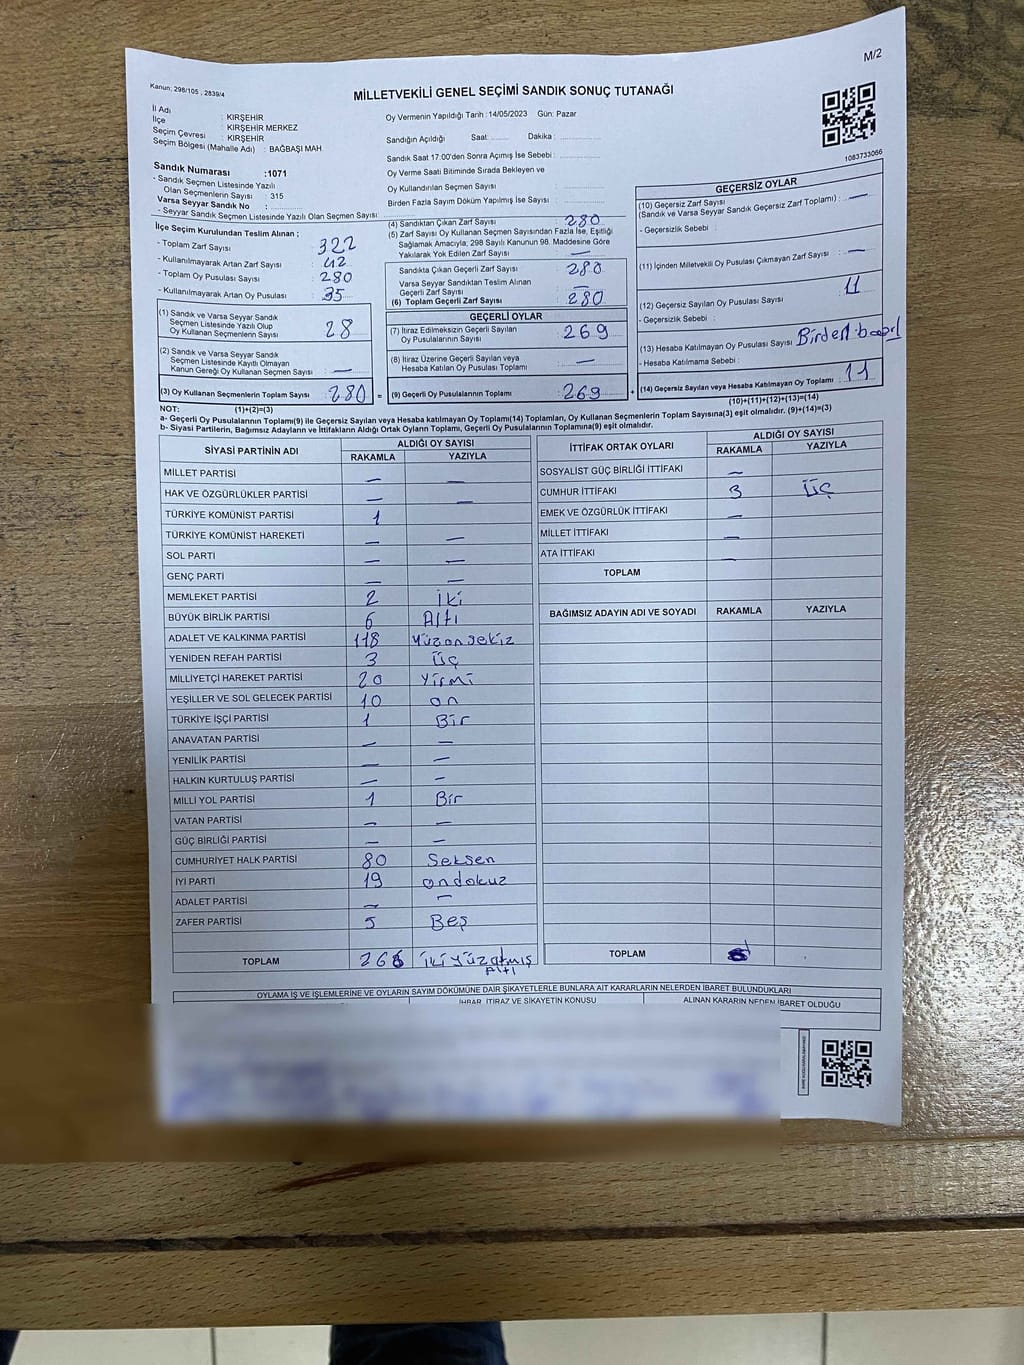 M/2
Kanun; 298/105 , 2839/4
MİLLETVEKİLİ GENEL SEÇİMİ SANDIK SONUÇ TUTANAĞI
1083733066
İl Adı : KIRŞEHİR
İlçe : KIRŞEHİR MERKEZ
Seçim Çevresi : KIRŞEHİR
Seçim Bölgesi (Mahalle Adı) : BAĞBAŞI MAH.
Sandık Numarası :1071
- Sandık Seçmen Listesinde Yazılı
Olan Seçmenlerin Sayısı : 315
Varsa Seyyar Sandık No :
- Seyyar Sandık Seçmen Listesinde Yazılı Olan Seçmen Sayısı
Oy Vermenin Yapıldığı Tarih :14/05/2023 Gün: Pazar
Sandığın Açıldığı Saat: Dakika :
Sandık Saat 17.00'den Sonra Açımış İse Sebebi :
Oy Verme Saati Bitiminde Sırada Bekleyen ve
Oy Kullandırılan Seçmen Sayısı :
Birden Fazla Sayım Döküm Yapılmış İse Sayısı :
İlçe Seçim Kurulundan Teslim Alınan ;
- Toplam Zarf Sayısı : 322
- Kullanılmayarak Artan Zarf Sayısı : 42
- Toplam Oy Pusulası Sayısı : 280
- Kullanılmayarak Artan Oy Pusulası : 35
(1) Sandık ve Varsa Seyyar Sandık
Seçmen Listesinde Yazılı Olup
Oy Kullanan Seçmenlerin Sayısı : 28
(2) Sandık ve Varsa Seyyar Sandık
Seçmen Listesinde Kayıtlı Olmayan
Kanun Gereği Oy Kullanan Seçmen Sayısı : —
(3) Oy Kullanan Seçmenlerin Toplam Sayısı : 280 =
(4) Sandıktan Çıkan Zarf Sayısı : 280
(5) Zarf Sayısı Oy Kullanan Seçmen Sayısından Fazla İse, Eşitliği
Sağlamak Amacıyla, 298 Sayılı Kanunun 98. Maddesine Göre
Yakılarak Yok Edilen Zarf Sayısı : —
Sandıkta Çıkan Geçerli Zarf Sayısı : 280
Varsa Seyyar Sandıktan Teslim Alınan
Geçerli Zarf Sayısı : —
(6) Toplam Geçerli Zarf Sayısı : 280
GEÇERLİ OYLAR
(7) İtiraz Edilmeksizin Geçerli Sayılan
Oy Pusulalarının Sayısı : 269
(8) İtiraz Üzerine Geçerli Sayılan veya
Hesaba Katılan Oy Pusulası Toplamı : —
(9) Geçerli Oy Pusulalarının Toplamı : 269 +
GEÇERSİZ OYLAR
(10) Geçersiz Zarf Sayısı
(Sandık ve Varsa Seyyar Sandık Geçersiz Zarf Toplamı) : —
- Geçersizlik Sebebi :
(11) İçinden Milletvekili Oy Pusulası Çıkmayan Zarf Sayısı : —
(12) Geçersiz Sayılan Oy Pusulası Sayısı : 11
- Geçersizlik Sebebi :
(13) Hesaba Katılmayan Oy Pusulası Sayısı : Birden
- Hesaba Katılmama Sebebi :
(14) Geçersiz Sayılan veya Hesaba Katılmayan Oy Toplamı : 11
NOT: (1)+(2)=(3)
(10)+(11)+(12)+(13)=(14)
a- Geçerli Oy Pusulalarının Toplamı(9) ile Geçersiz Sayılan veya Hesaba katılmayan Oy Toplamı(14) Toplamları, Oy Kullanan Seçmenlerin Toplam Sayısına(3) eşit olmalıdır. (9)+(14)=(3)
b- Siyasi Partilerin, Bağımsız Adayların ve İttifakların Aldığı Ortak Oyların Toplamı, Geçerli Oy Pusulalarının Toplamına(9) eşit olmalıdır.
SİYASİ PARTİNİN ADI ALDIĞI OY SAYISI
RAKAMLA YAZIYLA
MİLLET PARTİSİ — —
HAK VE ÖZGÜRLÜKLER PARTİSİ — —
TÜRKİYE KOMÜNİST PARTİSİ 1
TÜRKİYE KOMÜNİST HAREKETİ — —
SOL PARTİ — —
GENÇ PARTİ — —
MEMLEKET PARTİSİ 2 İki
BÜYÜK BİRLİK PARTİSİ 6 Altı
ADALET VE KALKINMA PARTİSİ 118 Yüzonsekiz
YENİDEN REFAH PARTİSİ 3 Üç
MİLLİYETÇİ HAREKET PARTİSİ 20 Yirmi
YEŞİLLER VE SOL GELECEK PARTİSİ 10 on
TÜRKİYE İŞÇİ PARTİSİ 1 Bir
ANAVATAN PARTİSİ — —
YENİLİK PARTİSİ — —
HALKIN KURTULUŞ PARTİSİ — —
MİLLİ YOL PARTİSİ 1 Bir
VATAN PARTİSİ — —
GÜÇ BİRLİĞİ PARTİSİ — —
CUMHURİYET HALK PARTİSİ 80 Seksen
İYİ PARTİ 19 ondokuz
ADALET PARTİSİ — —
ZAFER PARTİSİ 5 Beş
TOPLAM 266 ikiyüzatmış
Altı
İTTİFAK ORTAK OYLARI ALDIĞI OY SAYISI
RAKAMLA YAZIYLA
SOSYALİST GÜÇ BİRLİĞİ İTTİFAKI —
CUMHUR İTTİFAKI 3 Üç
EMEK VE ÖZGÜRLÜK İTTİFAKI —
MİLLET İTTİFAKI —
ATA İTTİFAKI —
TOPLAM
BAĞIMSIZ ADAYIN ADI VE SOYADI RAKAMLA YAZIYLA
TOPLAM
OYLAMA İŞ VE İŞLEMLERİNE VE OYLARIN SAYIM DÖKÜMÜNE DAİR ŞİKAYETLERLE BUNLARA AİT KARARLARIN NELERDEN İBARET BULUNDUKLARI
İHBAR, İTİRAZ VE ŞİKAYETİN KONUSU ALINAN KARARIN NEDEN İBARET OLDUĞU